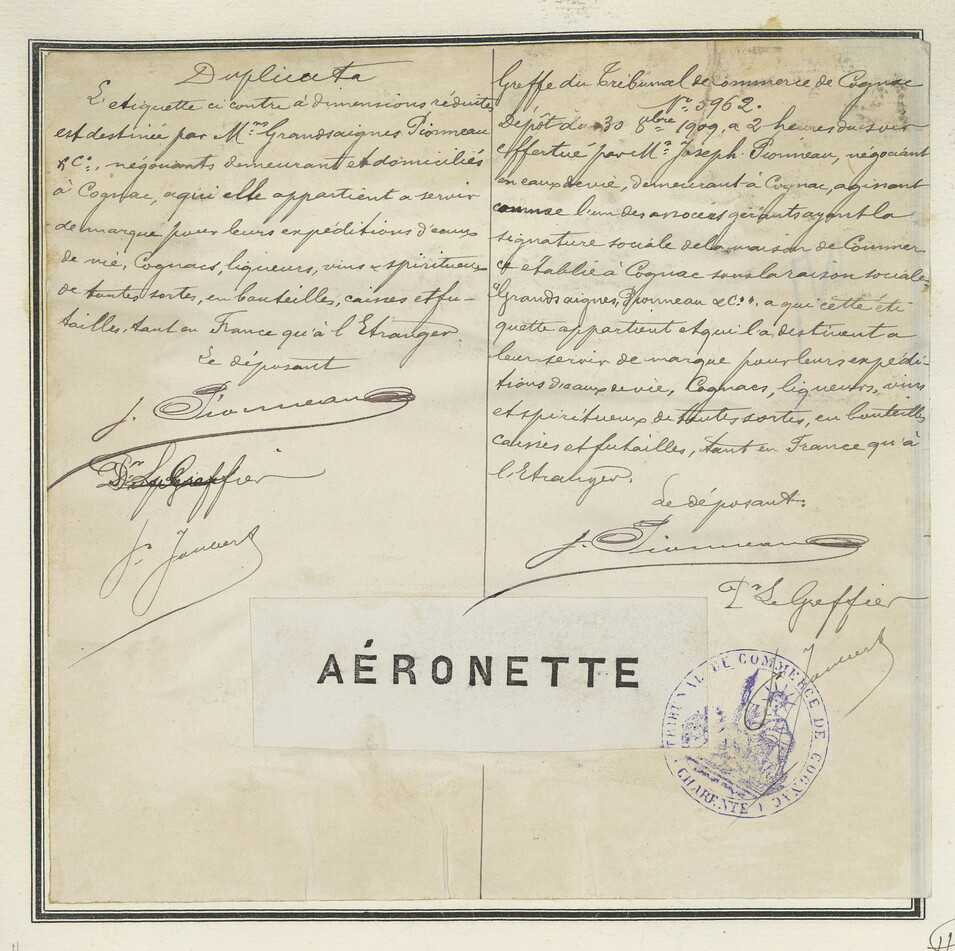 Duplicata
L'etiquette ci contre à dimensions réduites
est destinée par M.rs Grandsaignes Pionneau
& C.ie, négociants demeurant et domiciliés
à Cognac, a qui elle appartient a servir
de marque pour leurs expéditions d'eaux
de vie, Cognacs, liqueurs, vins & spiritueux
de toutes sortes, en bouteilles, caisses et fu-
tailles, tant en France qu'à l'Etranger.
Le déposant
J. Pionneau
P.r Le Greffier
Greffe du Tribunal de Commerce de Cognac
N.o 5962.
Dépôt du 30 8bre 1909, a 2 heures du soir
effectué par M.r Joseph Pionneau, négociant
en eaux de vie, demeurant à Cognac, agissant
comme l'un des associés gérants ayant la
signature sociale de la maison de Commer-
ce établie à Cognac sous la raison sociale
"Grandsaignes, Pionneau & C.ie", a qui cette éti
quette appartient et qui la destinent a
leur servir de marque pour leurs expédi-
tions d'eaux de vie, Cognacs, liqueurs, vins
et spiritueux de toutes sortes, en bouteilles
caisses et futailles, tant en France qu'à
l'Etranger.
Le déposant.
J. Pionneau
P.r Le Greffier
AÉRONETTE
TRIBUNAL DE COMMERCE DE COGNAC
CHARENTE